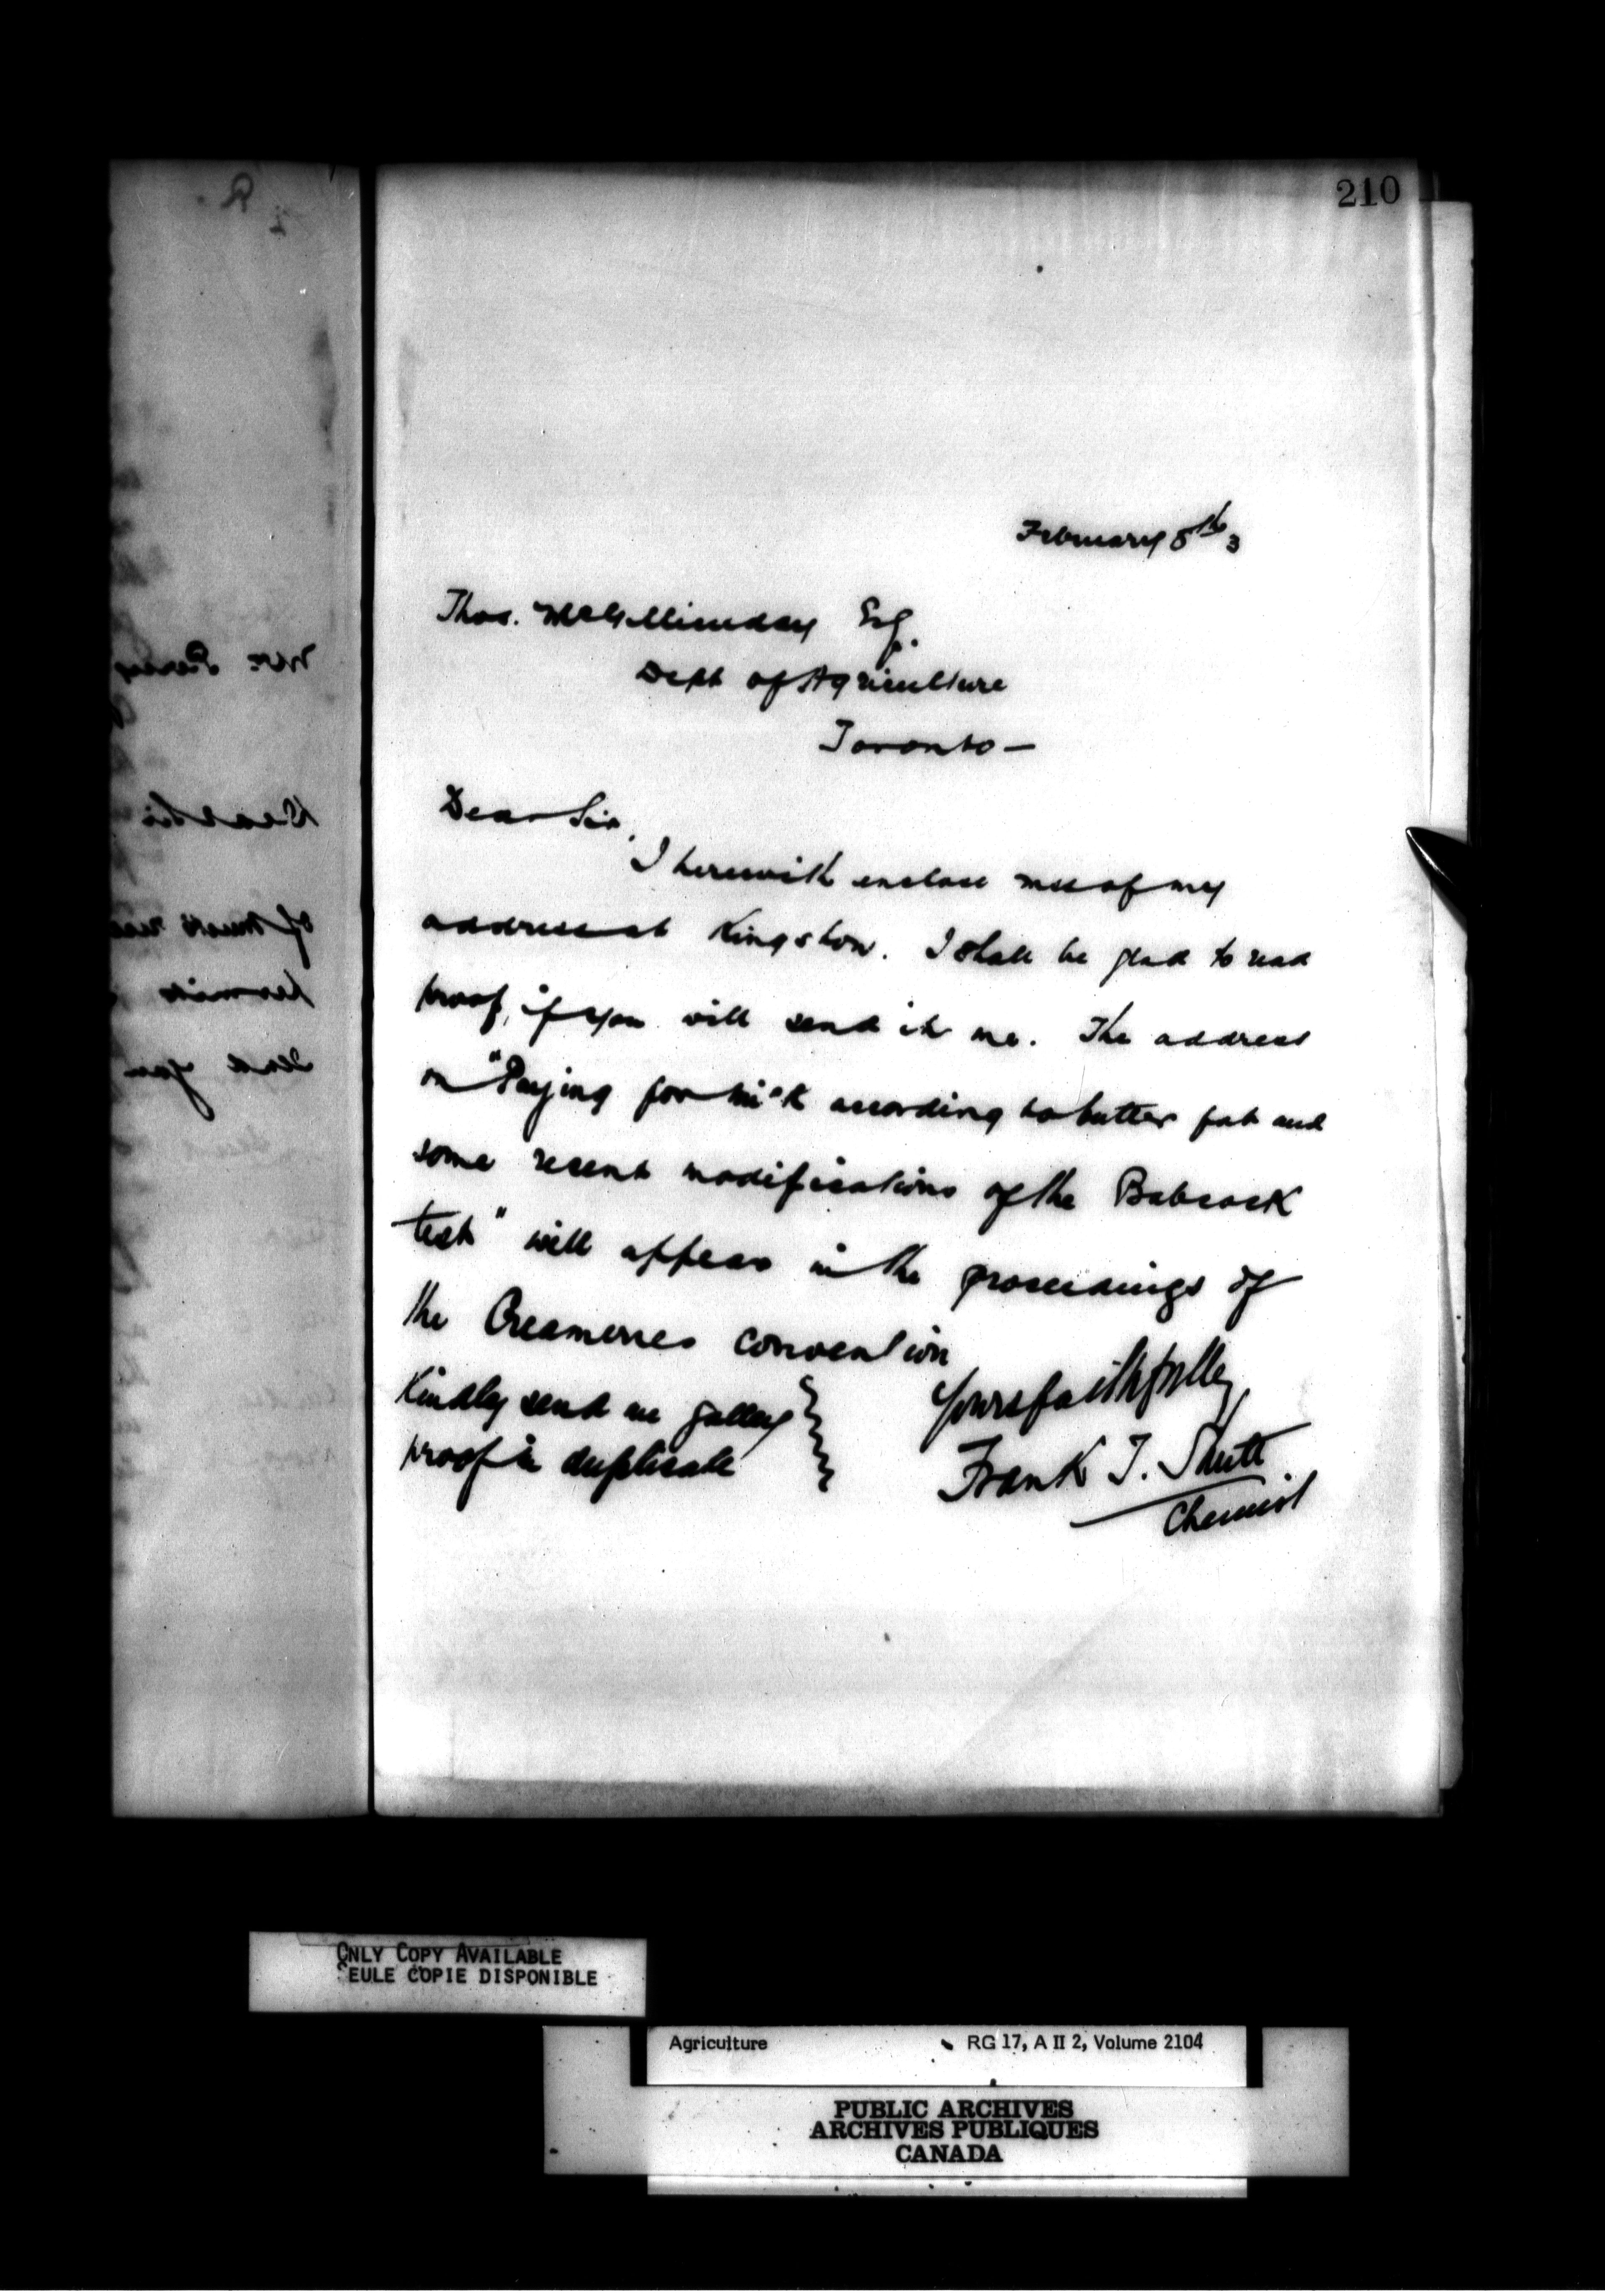 210
February 8th 3
Thos. McGillicuddy Esq.
Dept of Agriculture
Toronto —
Dear Sir,
I herewith enclose mss of my
address at Kingston. I shall be glad to read
proof, if you will send it me. The address
on "Paying for milk according to butter fat and
some recent modifications of the Babcock
test" will appear in the proceedings of
the Creameries convention
Yours faithfully
Frank T. Shutt
Chemist
Kindly send me galley
proof in duplicate
ONLY COPY AVAILABLE
SEULE COPIE DISPONIBLE
Agriculture RG 17, A II 2, Volume 2104
PUBLIC ARCHIVES
ARCHIVES PUBLIQUES
CANADA